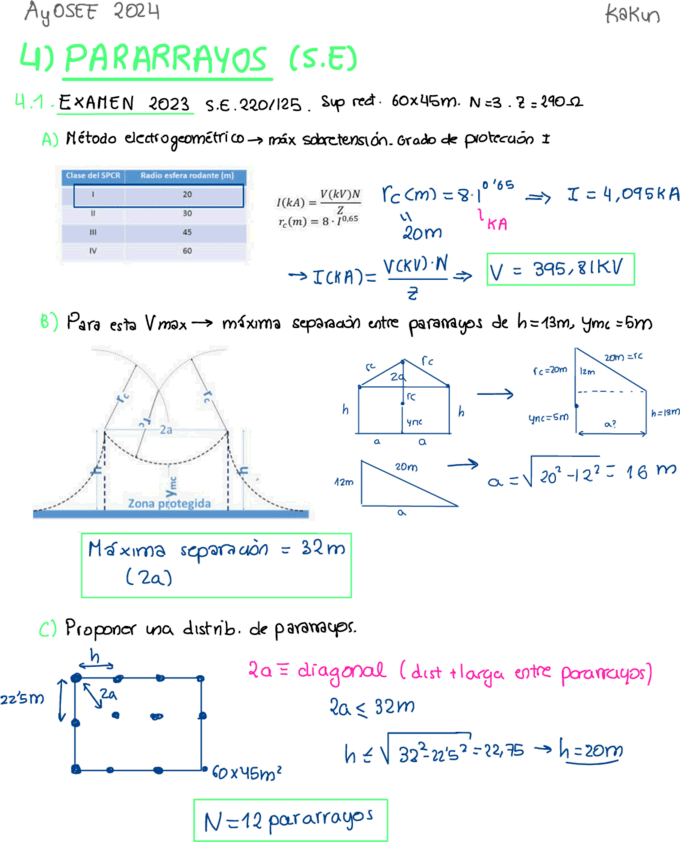 AyOSEE 2024
Kakun
4) PARARRAYOS (S.E)
4.1. EXAMEN 2023 S.E. 220/125. Sup rect. 60x45m. N=3. Z=290Ω
A) Método electrogeométrico → máx sobretensión. Grado de protección I
Clase del SPCR Radio esfera rodante (m)
I 20
II 30
III 45
IV 60
I(kA) = V(kV)N / Z
r_c(m) = 8 · I^0,65
rc(m) = 8·I^0'65 ⇒ I = 4,095KA
20m
KA
→ I(KA) = V(KV)·N / Z ⇒ V = 395,81KV
B) Para esta Vmax → máxima separación entre pararrayos de h=13m, ymc=5m
rc
rc
rc
2a
h
h
ymc
Zona protegida
rc
rc
2a
rc
h
ync
h
a
a
rc=20m
12m
20m=rc
ync=5m
a?
h=13m
12m
20m
a
→ a = √20²-12² = 16 m
Máxima separación = 32m
(2a)
C) Proponer una distrib. de pararrayos.
h
22'5m
2a
60x45m²
2a ≡ diagonal (dist +larga entre pararrayos)
2a ≤ 32m
h ≤ √32²-22'5² = 22,75 → h=20m
N=12 pararrayos